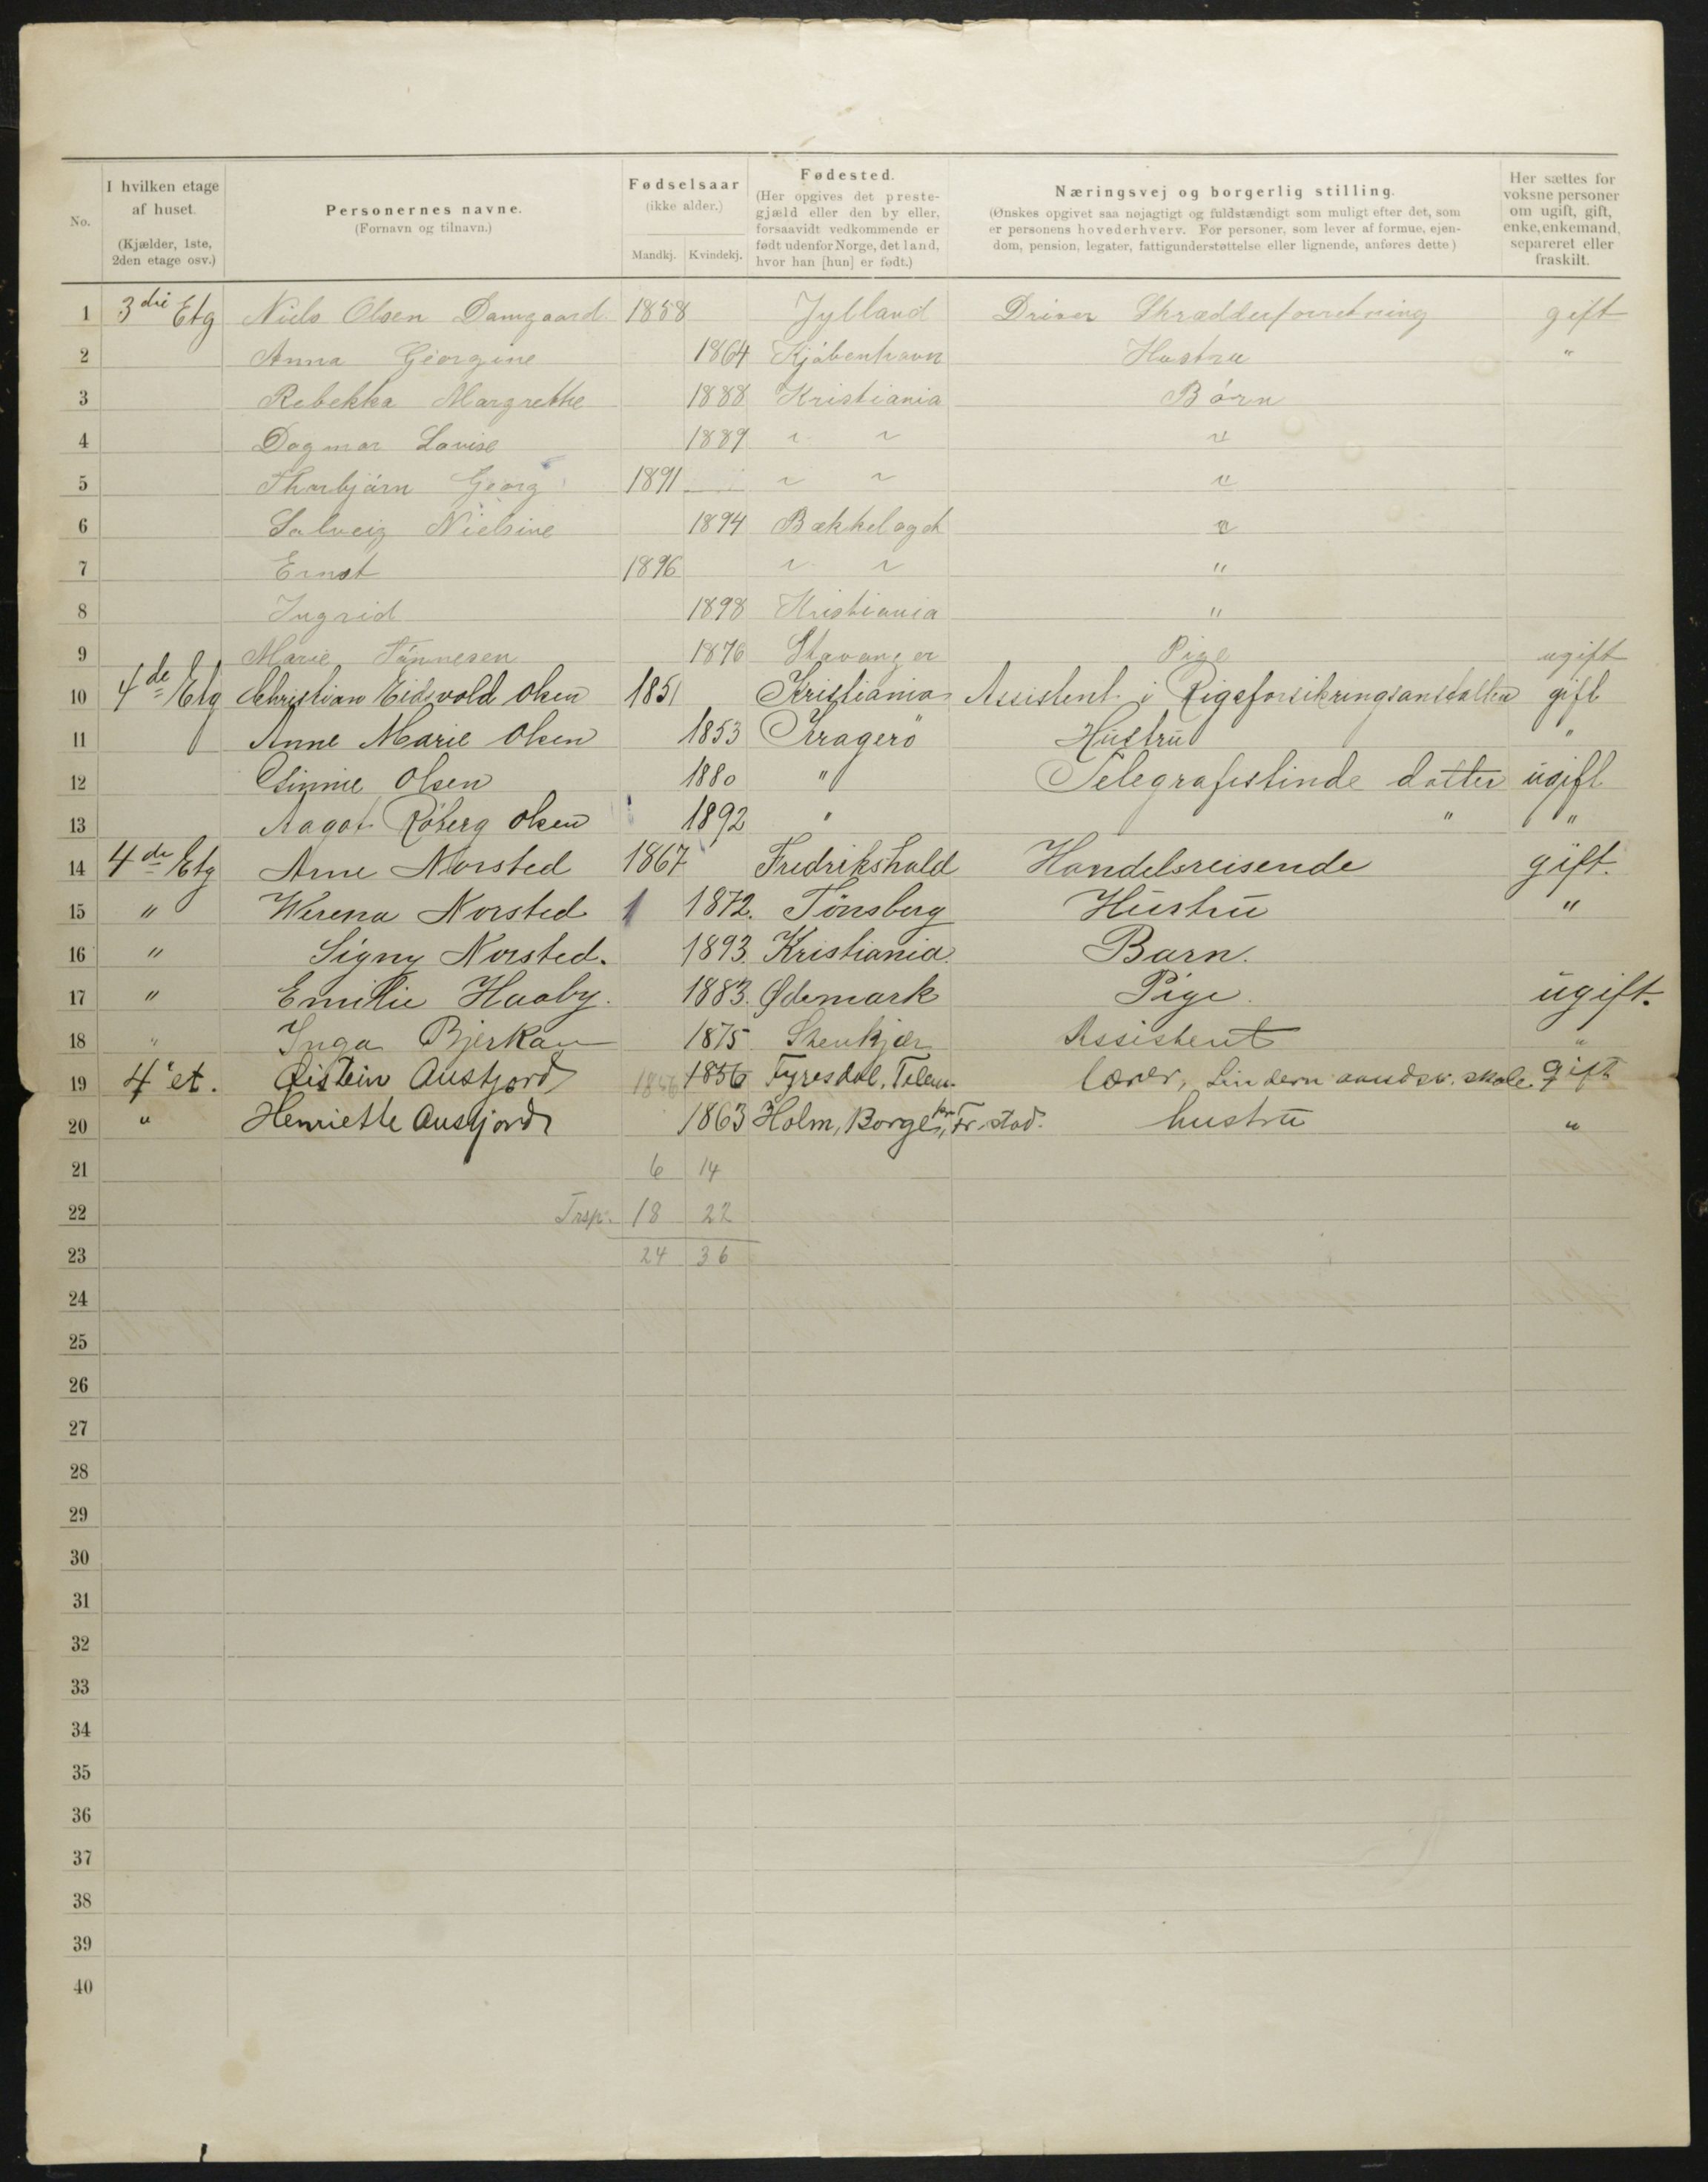 No.
I hvilken etage af huset. (Kjælder, 1ste, 2den etage osv.)
Personernes navne. (Fornavn og tilnavn.)
Fødselsaar (ikke alder.) Mandkj. Kvindekj.
Fødested. (Her opgives det prestegjæld eller den by eller, forsaavidt vedkommende er født udenfor Norge, det land, hvor han [hun] er født.)
Næringsvej og borgerlig stilling. (Ønskes opgivet saa nøjagtigt og fuldstændigt som muligt efter det, som er personens hovederhverv. For personer, som lever af formue, ejendom, pension, legater, fattigunderstøttelse eller lignende, anføres dette)
Her sættes for voksne personer om ugift, gift, enke, enkemand, separeret eller fraskilt.
1 3die Etg Niels Olsen Damgaard 1858 Jylland Driver Skrædderforretning gift
2 Anna Georgine 1864 Kjøbenhavn Hustru "
3 Rebekka Margrethe 1888 Kristiania Børn
4 Dagmar Lovise 1889 " " "
5 Thorbjørn Georg 1891 " " "
6 Solveig Nielsine 1894 Bækkelaget "
7 Ernst 1896 " " "
8 Ingrid 1898 Kristiania "
9 Marie Tønnesen 1876 Stavanger Pige ugift
10 4de Etg Christian Eidsvold Olsen 1851 Kristiania Assistent i Rigsforsikringsanstalten gift
11 Anne Marie Olsen 1853 Kragerö Hustru "
12 Olsen 1880 " Telegrafistinde datter ugift
13 Aagot Röberg Olsen 1892 " " "
14 4de Etg Arne Norsted 1867 Fredrikshald Handelsreisende gift.
15 " Werena Norsted 1 1872. Tönsberg Hustru "
16 " Signy Norsted. 1893. Kristiania. Barn.
17 " Emilie Haaby. 1883. Ødemark Pige. ugift.
18 " Inga Bjerkan 1875 Stenkjær Assistent "
19 4' et. Øistein Austjord 1856 1856 Fyresdal, Telem. lærer, Lindern aandsv. skole. gift
20 " Henriette Austjord 1863 Holm, Borge, Fr.stad. hustru "
21 6 14
22 Trsp. 18 22
23 24 36
24
25
26
27
28
29
30
31
32
33
34
35
36
37
38
39
40